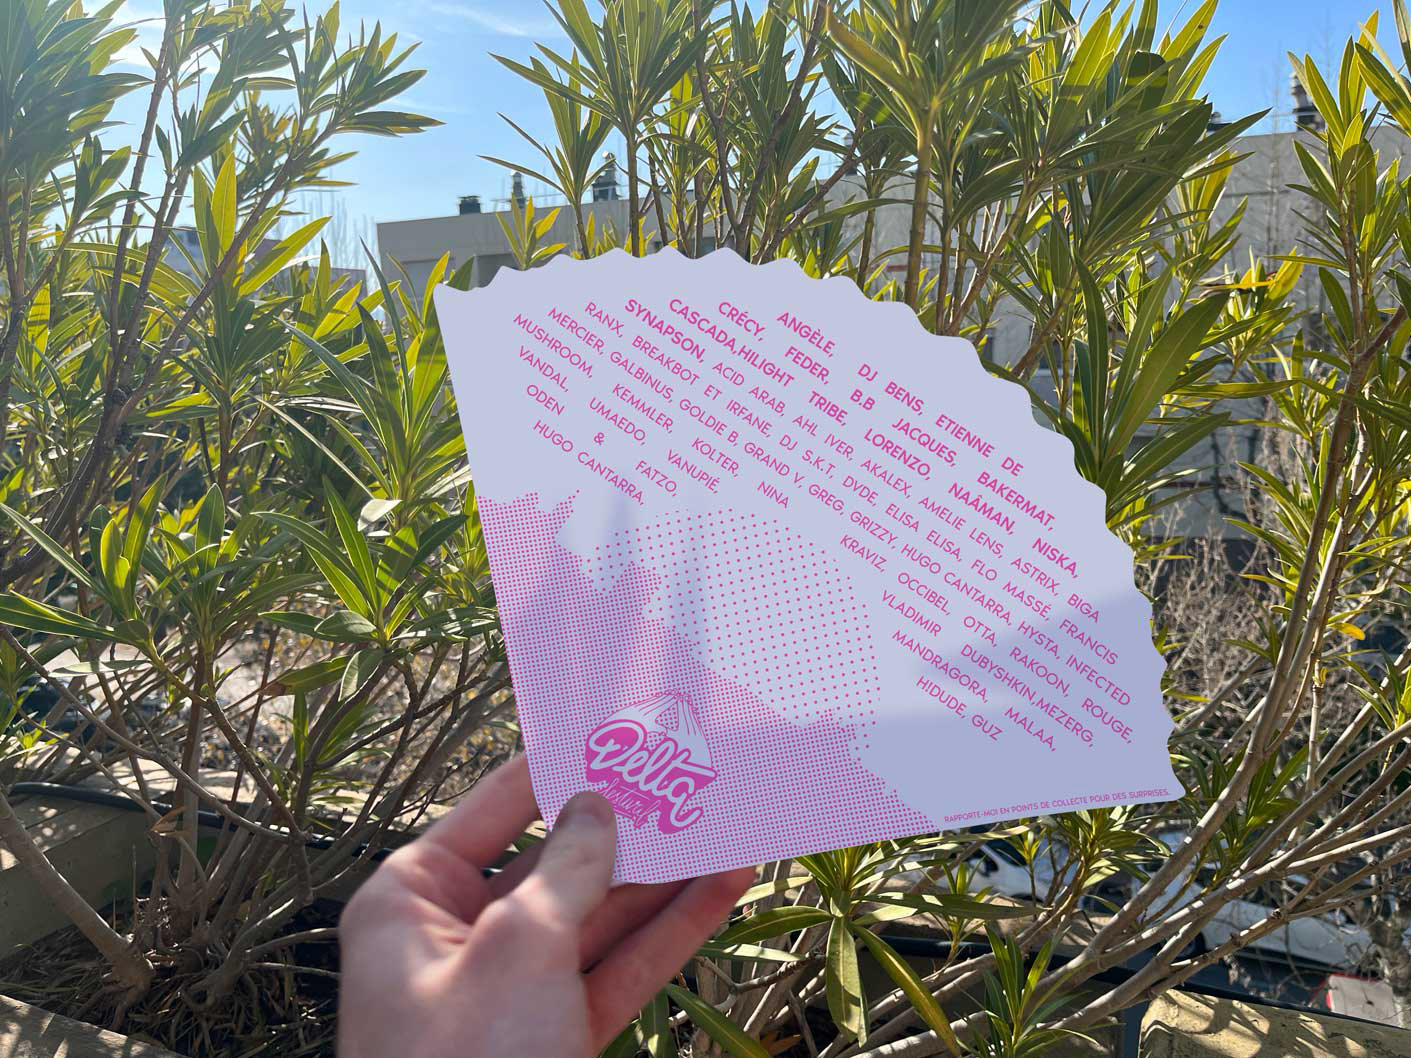 ANGÈLE, DJ BENS, ETIENNE DE
CRÉCY, FEDER, B.B JACQUES, BAKERMAT,
CASCADA,HILIGHT TRIBE, LORENZO, NAÂMAN, NISKA,
SYNAPSON, ACID ARAB, AHL IVER, AKALEX, AMELIE LENS, ASTRIX, BIGA
RANX, BREAKBOT ET IRFANE, DJ S.K.T, DVDE, ELISA ELISA, FLO MASSÉ FRANCIS
MERCIER, GALBINUS, GOLDIE B, GRAND V, GREG, GRIZZY, HUGO CANTARRA, HYSTA, INFECTED
MUSHROOM, KEMMLER, KOLTER, NINA KRAVIZ, OCCIBEL, OTTA, RAKOON, ROUGE,
VANDAL, UMAEDO, VANUPIÉ, VLADIMIR DUBYSHKIN,MEZERG,
ODEN & FATZO, MANDRAGORA, MALAA,
HUGO CANTARRA, HIDUDE, GUZ
Delta
festival
RAPPORTE-MOI EN POINTS DE COLLECTE POUR DES SURPRISES.